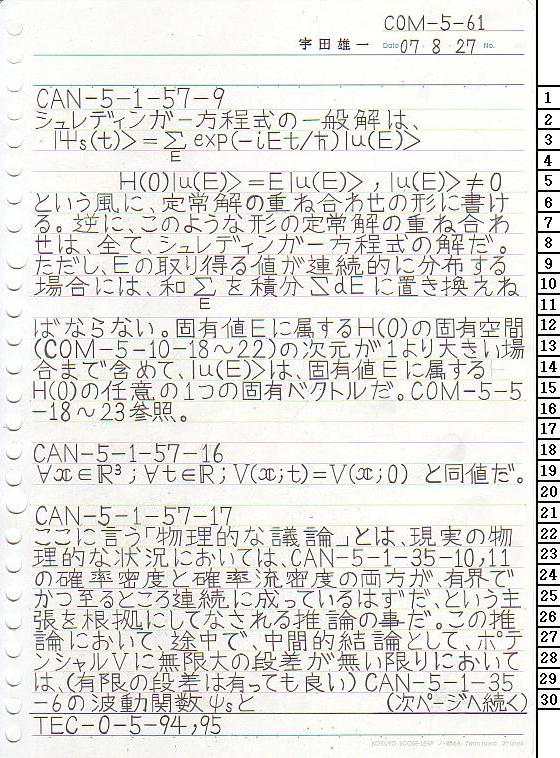 COM-5-61
宇田雄一 Date 07・8・27 No.
CAN-5-1-57-9
シュレディンガー方程式の一般解は、
|Ψs(t)〉=Σ exp(-iEt/ħ)|u(E)〉
E
H(0)|u(E)〉=E|u(E)〉,|u(E)〉≠0
という風に、定常解の重ね合わせの形に書け
る。逆に、このような形の定常解の重ね合わ
せは、全て、シュレディンガー方程式の解だ。
ただし、Eの取り得る値が連続的に分布する
場合には、和Σを積分∑dEに置き換えね
E
ばならない。固有値Eに属するH(0)の固有空間
(COM-5-10-18～22)の次元が1より大きい場
合まで含めて、|u(E)〉は、固有値Eに属する
H(0)の任意の1つの固有ベクトルだ。COM-5-5
-18～23参照。
CAN-5-1-57-16
∀x∈R³;∀t∈R;V(x;t)=V(x;0) と同値だ。
CAN-5-1-57-17
ここに言う「物理的な議論」とは、現実の物
理的な状況においては、CAN-5-1-35-10,11
の確率密度と確率流密度の両方が、有界で
かつ至るところ連続に成っているはずだ、という主
張を根拠にしてなされる推論の事だ。この推
論において、途中で、中間的結論として、ポテ
ンシャルVに無限大の段差が無い限りにおいて
は、(有限の段差は有っても良い)CAN-5-1-35
-6の波動関数ψsと (次ページへ続く)
TEC-0-5-94,95
KOKUYO LOOSE-LEAF ノ-836A 7mm ruled 31 lines
1
2
3
4
5
6
7
8
9
10
11
12
13
14
15
16
17
18
19
20
21
22
23
24
25
26
27
28
29
30